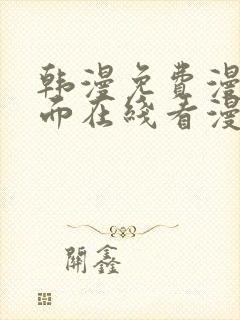 韩漫免费漫
而在线看漫
開鑫